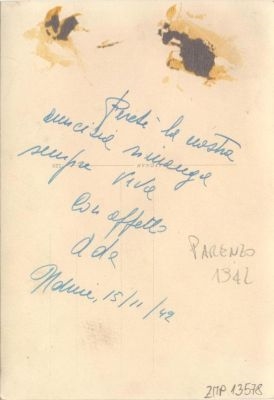 Perché la nostra
amicizia rimanga
sempre viva
Con affetto
Ada
15/11/42
PARENZO
1942
ZMP 13578